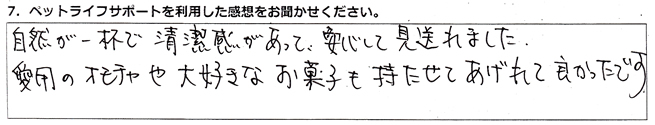 7．ペットライフサポートを利用した感想をお聞かせください。
自然が一杯で 清潔感があって、安心して 見送れました.
愛用の オモチャや 大好きな お菓子も 持たせて あげれて 良かったです